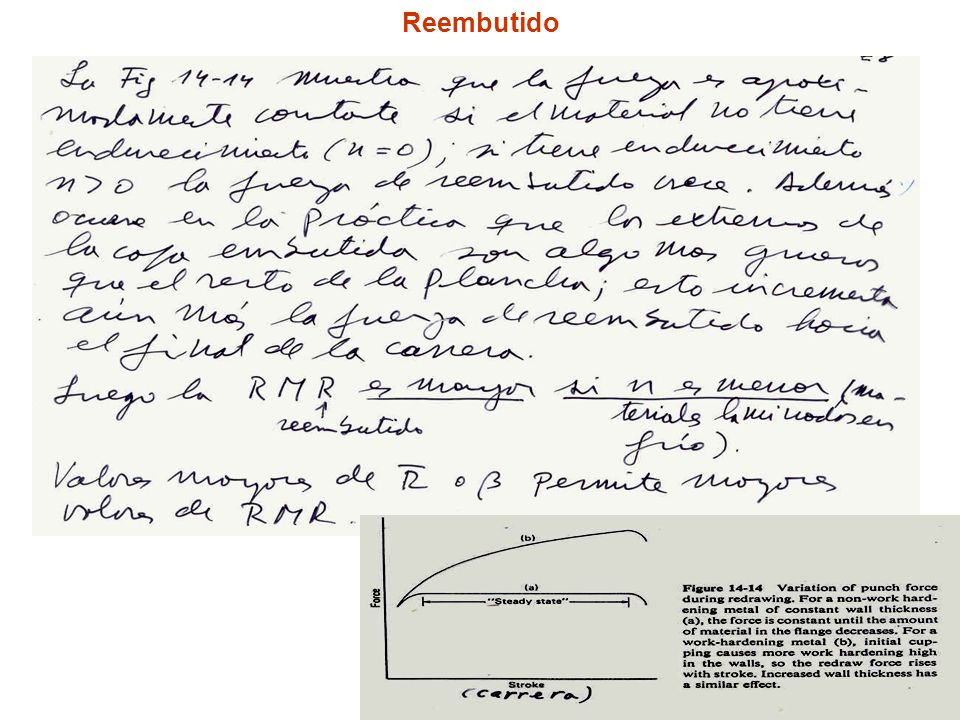 Reembutido
La Fig 14-14 muestra que la fuerza es aproxi-
madamente constante si el material no tiene
endurecimiento (n=0); si tiene endurecimiento
n>0 la fuerza de reembutido crece. Además
ocurre en la práctica que los extremos de
la copa embutida son algo mas gruesos
que el resto de la plancha; esto incrementa
aún más la fuerza de reembutido hacia
el final de la carrera.
Luego la RMR es mayor si n es menor (ma-
↑
reembutido
teriales laminados en
frío).
Valores mayores de R̅ o β permite mayores
valores de RMR.
(b)
(a)
"Steady state"
Force
Stroke
(carrera)
Figure 14-14 Variation of punch force
during redrawing. For a non-work hard-
ening metal of constant wall thickness
(a), the force is constant until the amount
of material in the flange decreases. For a
work-hardening metal (b), initial cup-
ping causes more work hardening high
in the walls, so the redraw force rises
with stroke. Increased wall thickness has
a similar effect.